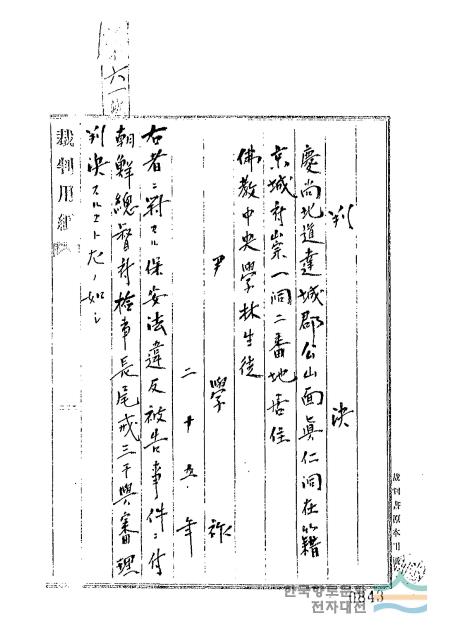 六一
判決
慶尚北道達城郡公山面眞仁洞在籍
京城府崇一洞二番地居住
佛敎中央學林生徒
尹學祚
二十五年
右者ニ對スル保安法違反被告事件ニ付
朝鮮總督府檢事長尾戒三干與審理
判決スルコト左ノ如シ
裁判用紙
裁判書原本用
0843
한국향토문화
전자대전